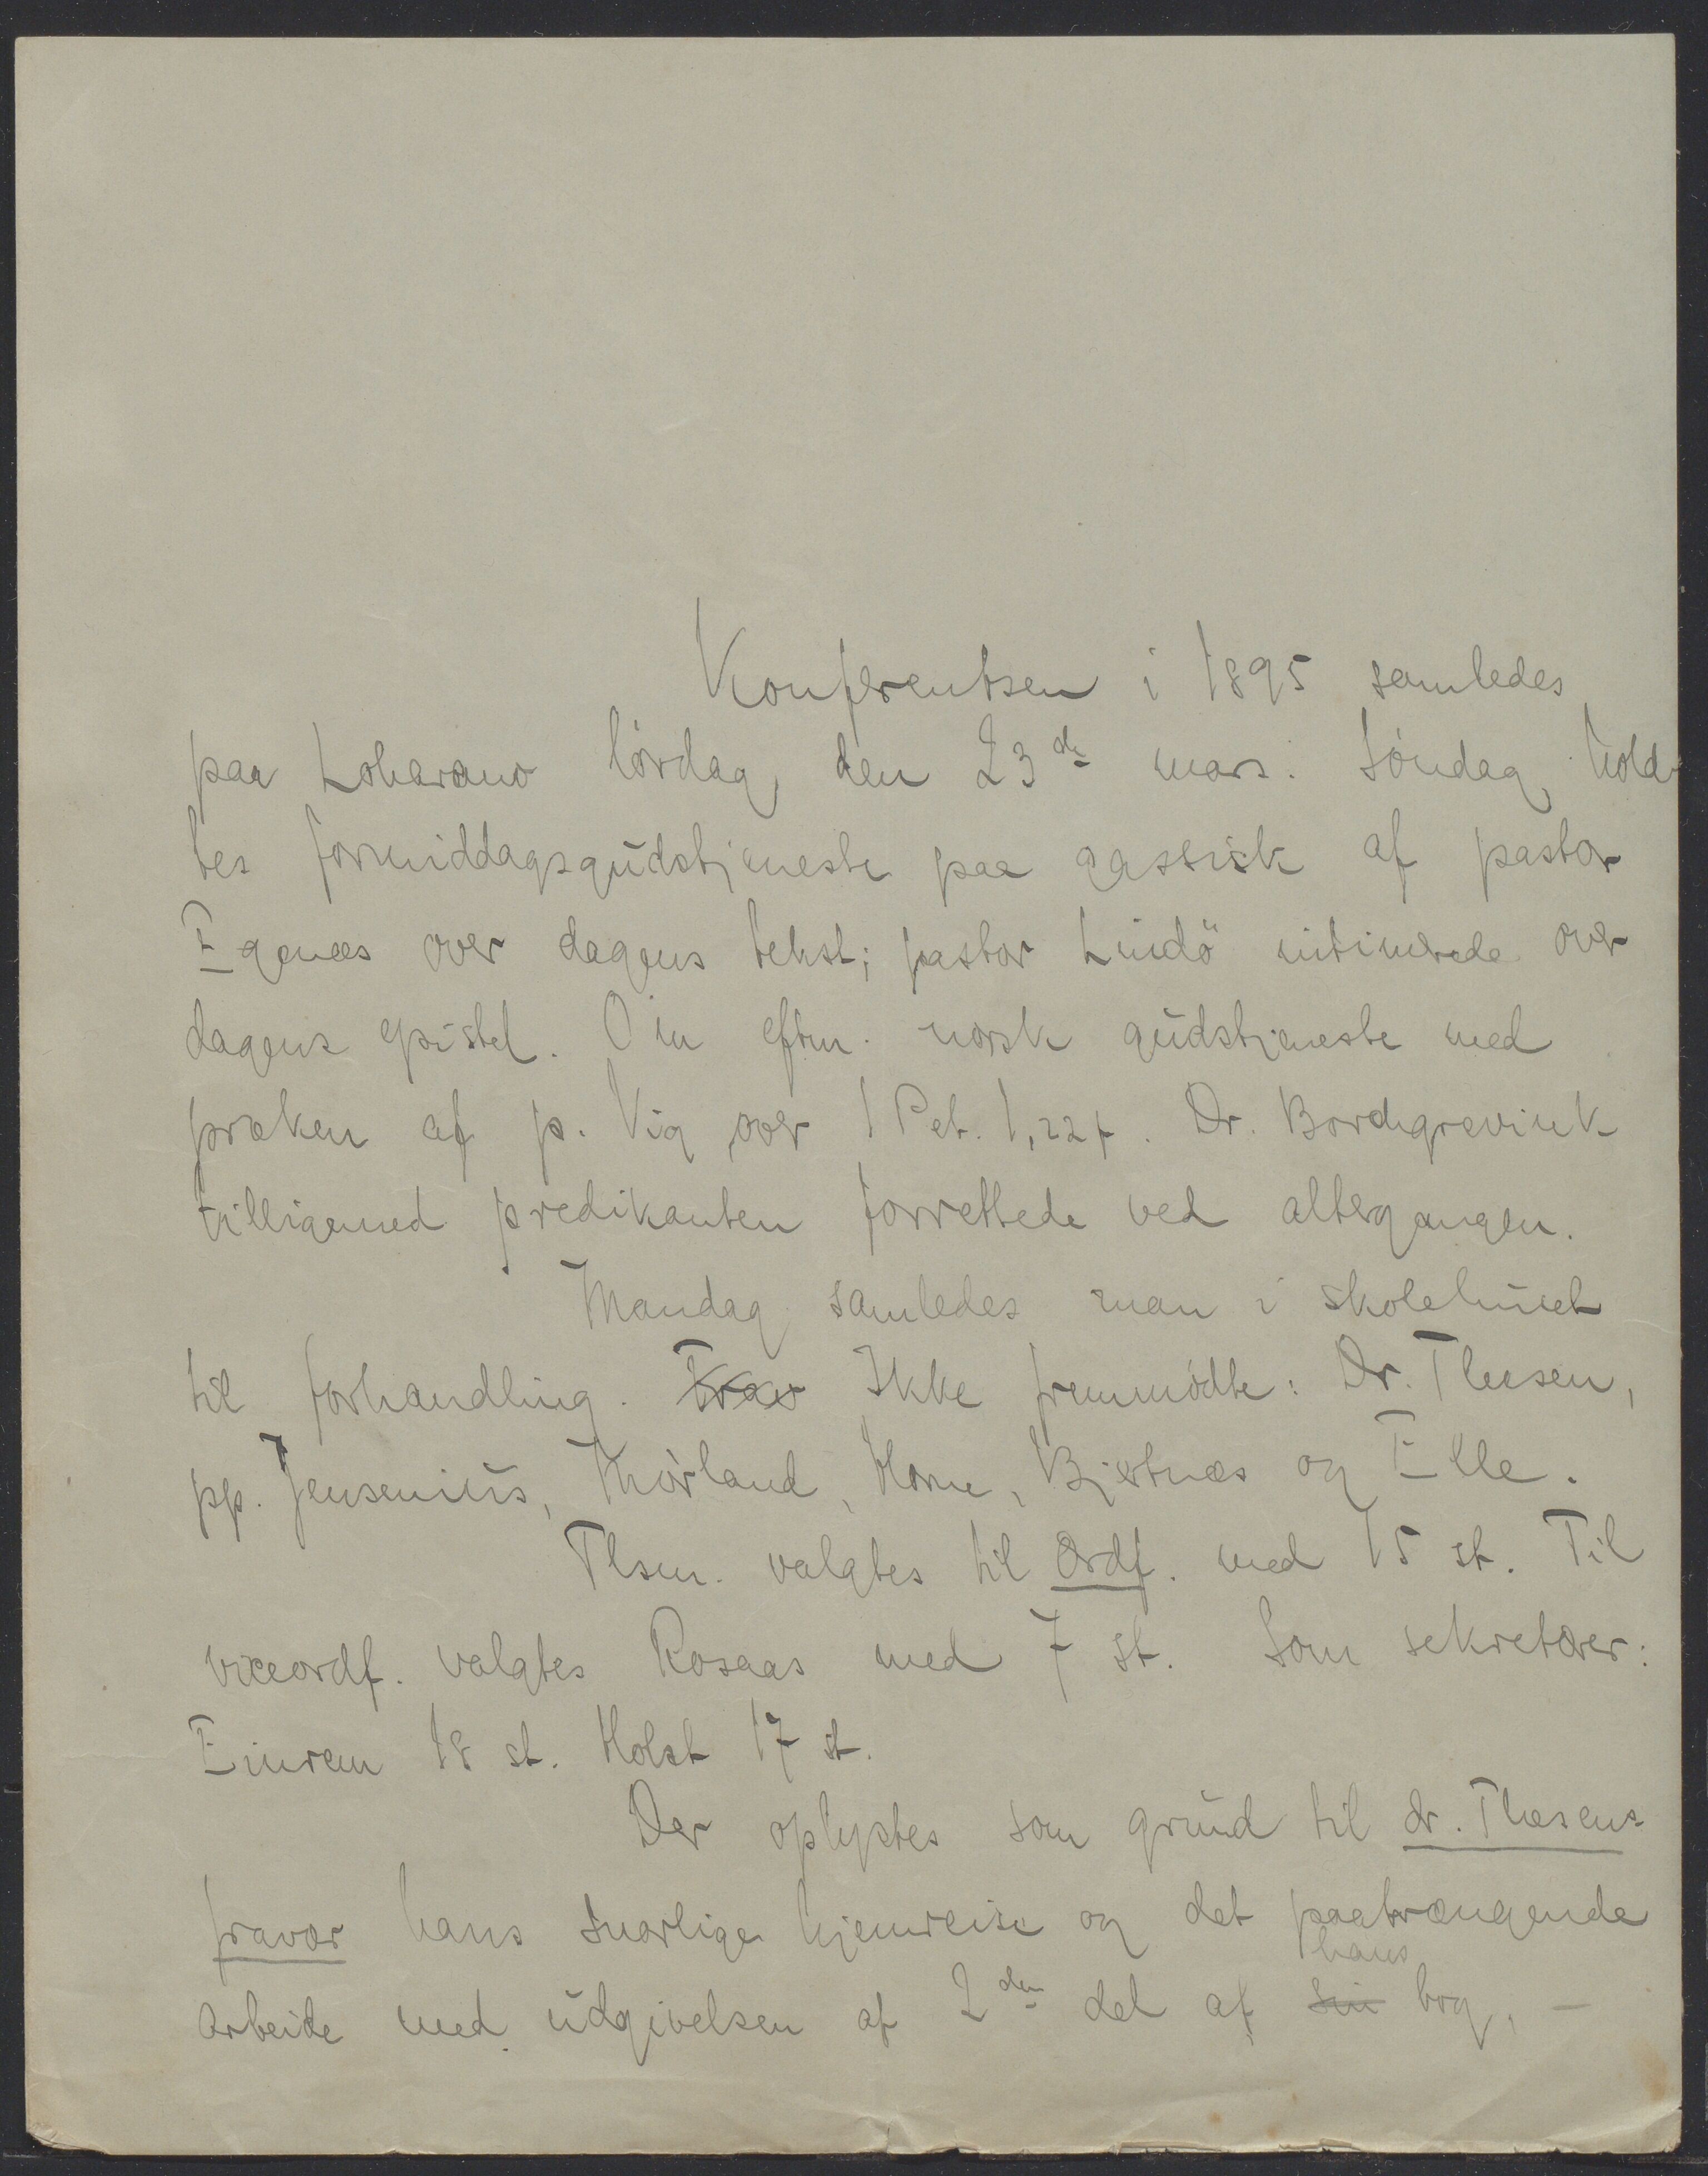 Konferentsen i 1895 samledes
paa Loharano lördag den 23de mars. Söndag hold-
tes formiddagsgudstjeneste paa gassisk af pastor
Egenæs over dagens tekst; pastor Lindö intimerede over
dagens epistel. Om eftm. norsk gudstjeneste med
præken af p. Vig over 1 Pet. 1,22f. Dr. Borchgrevink
tilligemed predikanten forrettede ved altergangen.
Mandag samledes man i skolehuset
til forhandling. Frav Ikke fremmödte: Dr. Thesen,
pp. Jensenius, Thorland, Horne, Bjertnæs og Elle.
valgtes til Ordf. med 15 st. Til
viceordf. valgtes Rosaas med 7 st. Som sekretærer:
Einrem 18 st. Holst 17 st.
Der oplystes som grund til dr. Thesens
fravær hans snarlige hjemreise og det paatrængende
hans
arbeide med udgivelsen af 2den del af sin bog, –